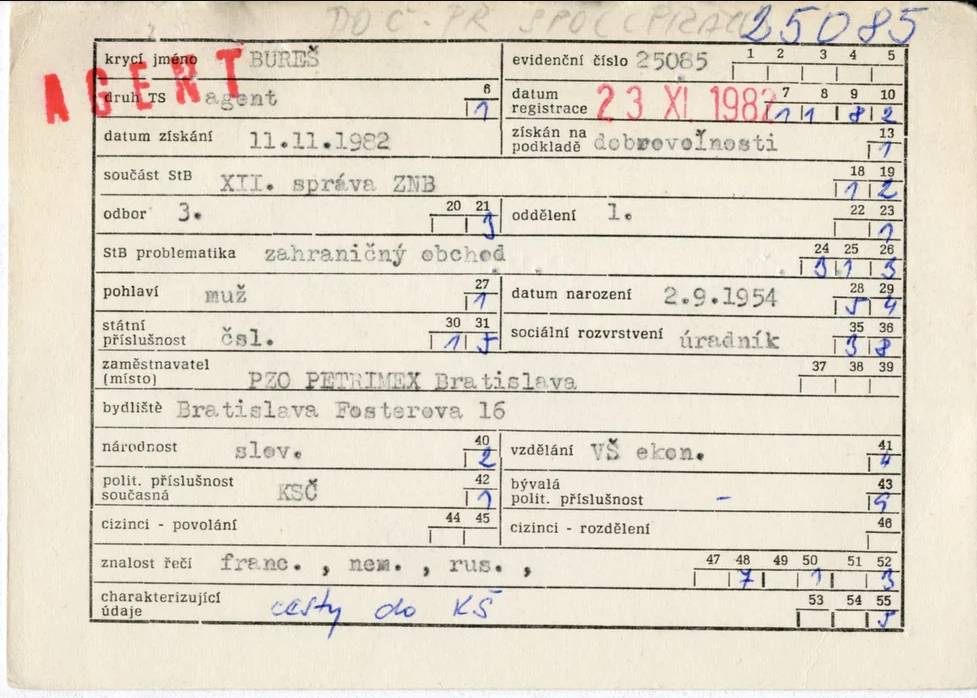 DO Č. PR SPOL 25085
AGENT
krycí jméno BUREŠ evidenční číslo 25085 1 2 3 4 5
druh TS agent 6 1 datum registrace 23 XI. 1982 7 8 9 10 1 1 8 2
datum získání 11.11.1982 získán na podkladě dobrovoľnosti 13 1
součást StB XII. správa ZNB 18 19 1 2
odbor 3. 20 21 3 oddělení 1. 22 23 1
StB problematika zahraničný obchod 24 25 26 3 1 3
pohlaví muž 27 1 datum narození 2.9.1954 28 29 5 4
státní příslušnost čsl. 30 31 1 5 sociální rozvrstvení úradník 35 36 3 8
zaměstnavatel (místo) PZO PETRIMEX Bratislava 37 38 39
bydliště Bratislava Fosterova 16
národnost slov. 40 2 vzdělání VŠ ekon. 41 4
polit. příslušnost současná KSČ 42 1 bývalá polit. příslušnost - 43 9
cizinci - povolání 44 45 cizinci - rozdělení 46
znalost řečí franc. , nem. , rus. , 47 48 49 50 51 52 7 1 3
charakterizující údaje cesty do KŠ 53 54 55 5